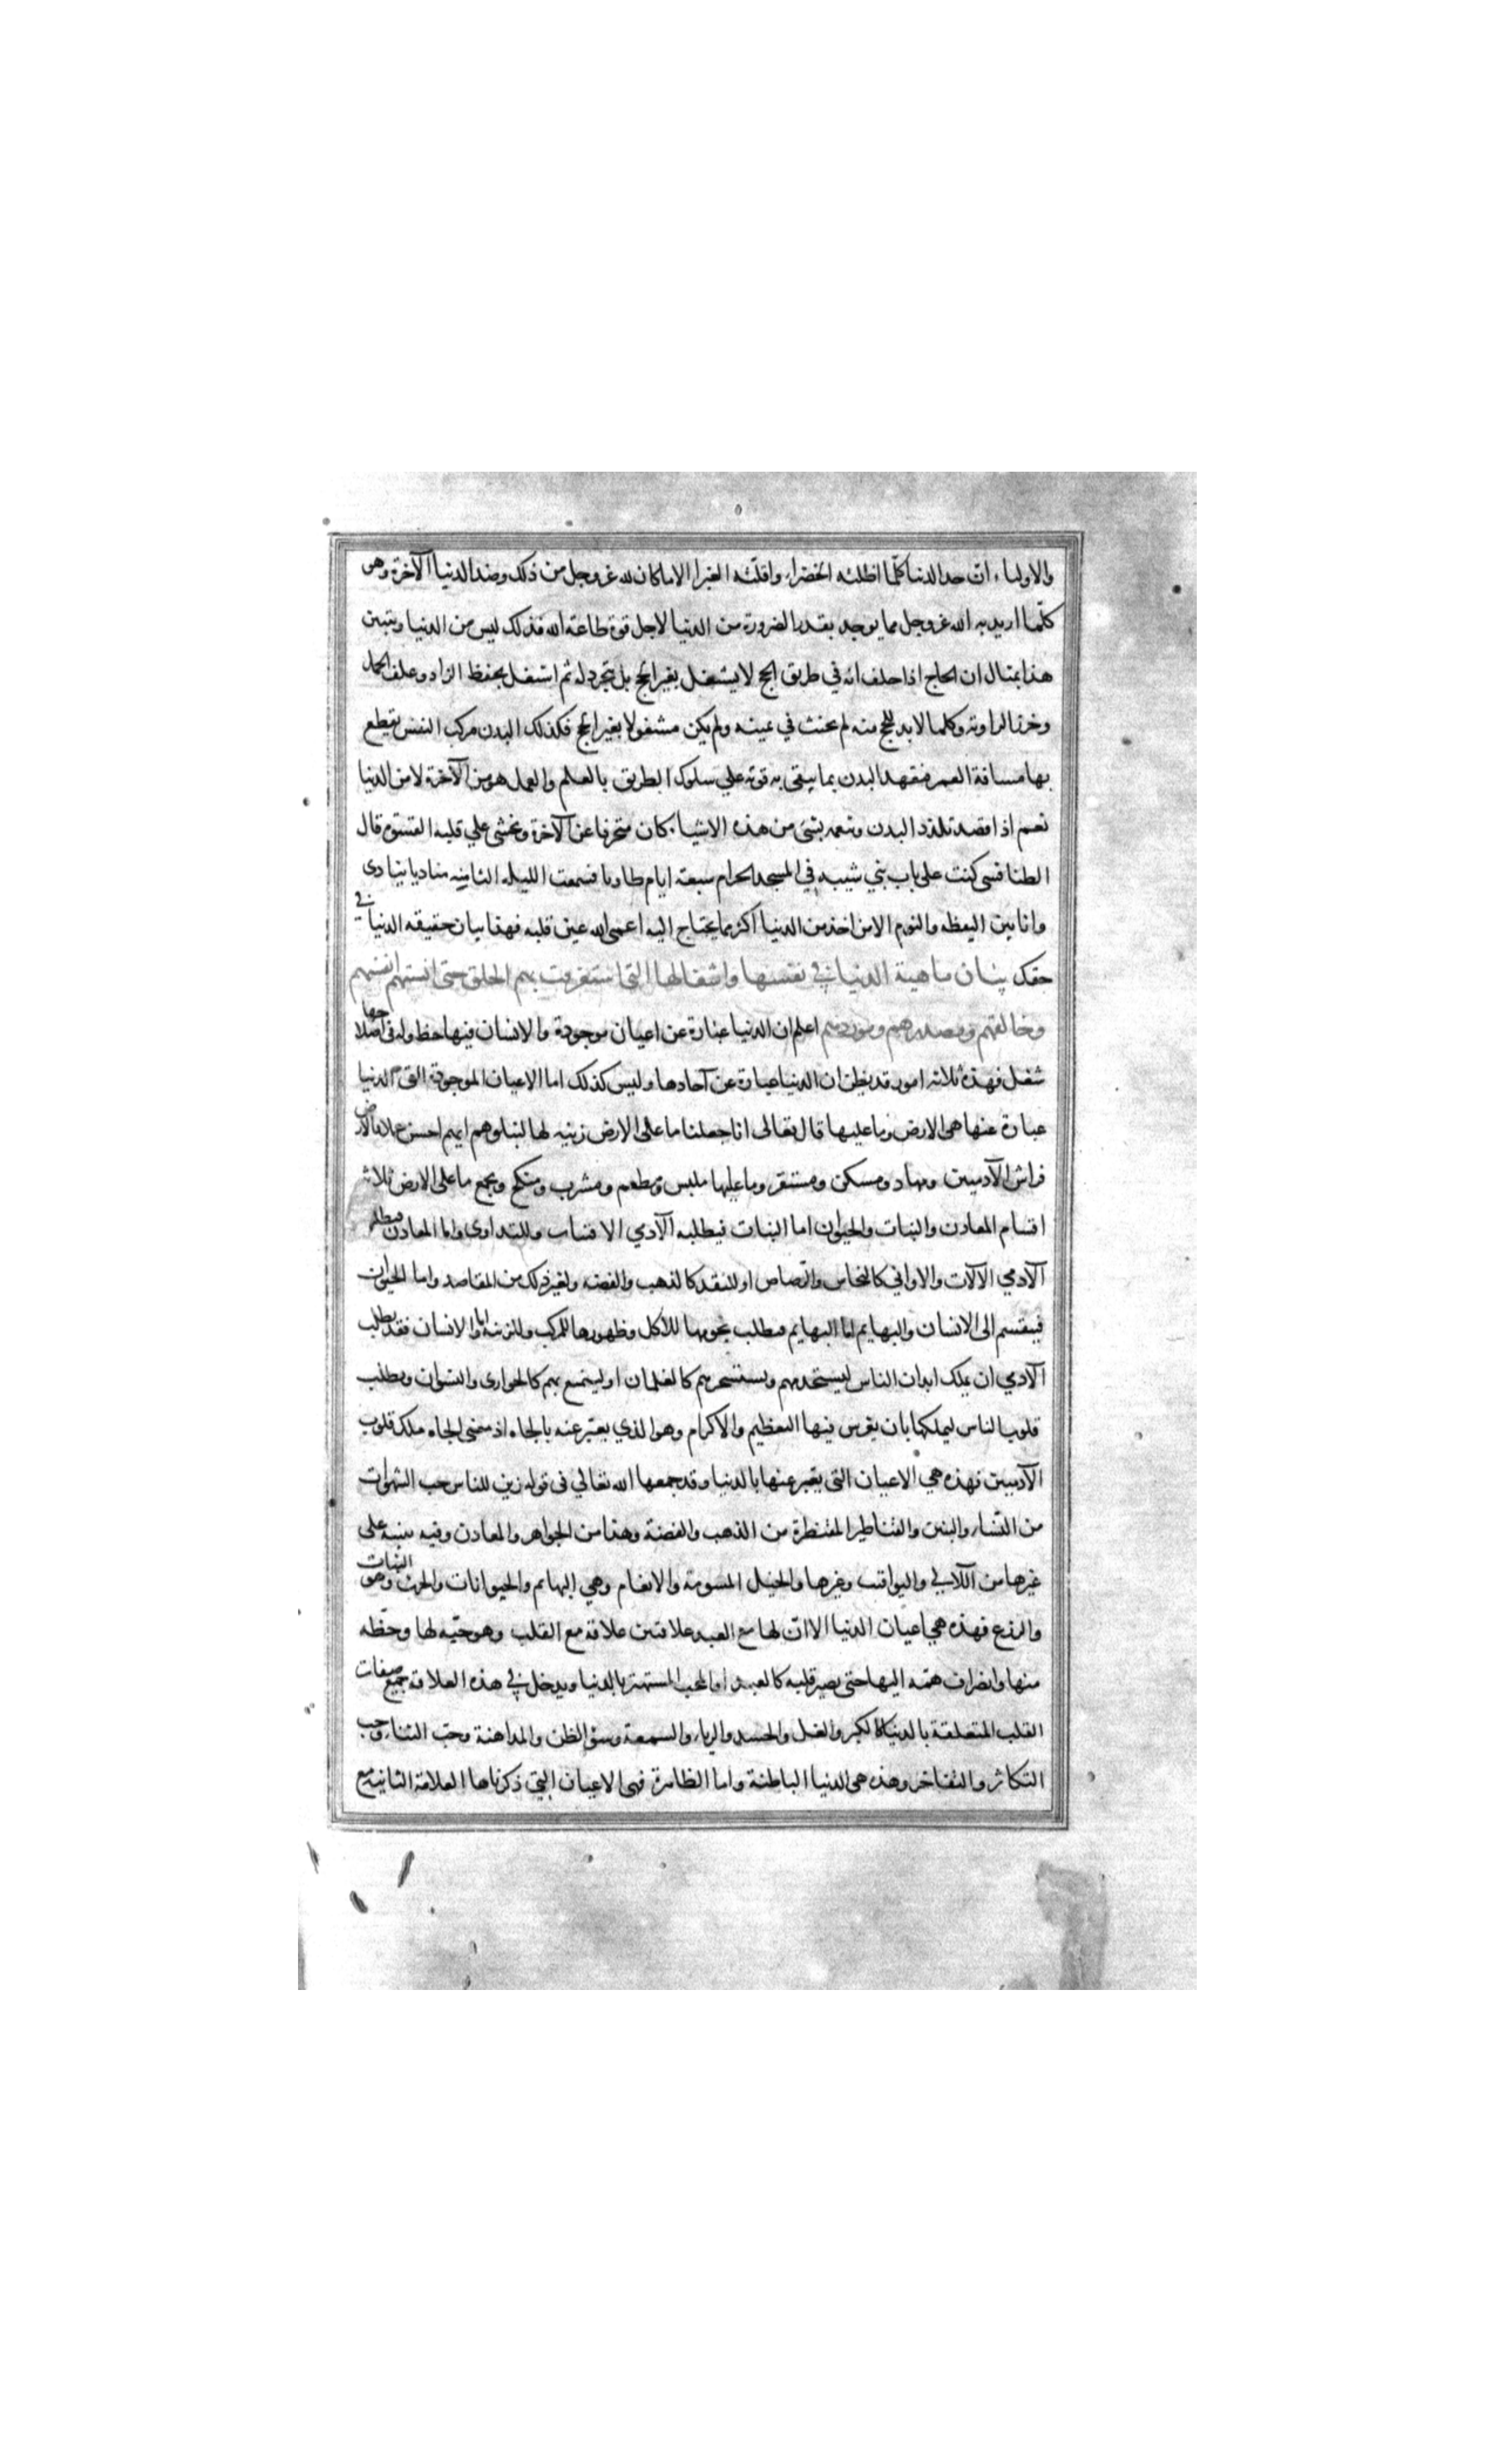 والاولياء ان حد الدنيا كلما اظلته الخضراء واقلته الغبرا الا ما كان لله عز وجل من ذلك وضد الدنيا الآخرة وهى
كلما اريد به الله عز وجل مما يوجد بقدر الضرورة من الدنيا لاجل قوة طاعة الله فذلك ليس من الدنيا ويتبين
هذا بمثال ان الحاج اذا حلف انه في طريق الحج لا يشتغل بغير الحج بل يتجرد له ثم اشتغل بحفظ الزاد وعلف الجمل
وخرز الراوية وكلما لابد للحج منه لم يحنث في يمينه ولم يكن مشغولا بغير الحج فكذلك البدن مركب النفس يقطع
بها مسافة العمر فتعهد البدن بما يبقى به قوته علي سلوك الطريق بالعلم والعمل هو من الآخرة لا من الدنيا
نعم اذا قصد تلذذ البدن وتنعمه بشئ من هذه الاشياء كان منحرفا عن الآخرة ويخشى علي قلبه القسوة قال
الطنافسى كنت على باب بني شيبه في المسجد الحرام سبعة ايام طاويا فسمعت الليلة الثامنة مناديا ينادى
وانا بين اليقظه والنوم الا من اخذ من الدنيا اكثر مما يحتاج اليه اعمى الله عين قلبه فهذا بيان حقيقه الدنيا في
حقك بيان ماهية الدنيا في نفسها واشغالها التي استغرقت بهم الخلق حتى انستهم انفسهم
وخالقهم ومصدرهم وموردهم اعلم ان الدنيا عبارة عن اعيان موجودة والانسان فيها حظ وله فى اصلاحها
شغل فهذه ثلاثه امور قد يظن ان الدنيا عبارة عن آحادها وليس كذلك اما الاعيان الموجودة التى الدنيا
عبارة عنها هى الارض وما عليها قال تعالى انا جعلنا ما على الارض زينه لها لنبلوهم ايهم احسن عملا فالارض
فراش الآدميين ومهاد ومسكن ومستقر وما عليها ملبس ومطعم ومشرب ومنكح ويجمع ما على الارض ثلاثه
اقسام المعادن والنبات والحيوان اما النبات فيطلبه الآدمي الاقتيات وللتداوى واما المعادن فيطلبه
الآدمي الآلات والاواني كالنحاس والرصاص او للنقد كالذهب والفضه ولغير ذلك من المقاصد واما الحيوان
فينقسم الى الانسان والبهايم اما البهايم فيطلب لحومها للاكل وظهورها للمركب وللزينه واما الانسان فقد يطلب
الآدمي ان يملك ابدان الناس ليستخدمهم ويستسخرهم كالغلمان او ليتمتع بهم كالجوارى والنسوان ويطلب
قلوب الناس ليملكها بان يغرس فيها التعظيم والاكرام وهو الذي يعبر عنه بالجاه اذ معنى الجاه ملك قلوب
الآدميين فهذه هي الاعيان التى يعبر عنها بالدنيا وقد جمعها الله تعالي فى قوله زين للناس حب الشهوات
من النساء والبنين والقناطير المقنطرة من الذهب والفضة وهذا من الجواهر والمعادن وفيه بينه على
غيرها من اللآلي واليواقيت وغيرها والخيل المسومة والانعام وهي البهايم والحيوانات والحرث وهو النبات
والزرع فهذه هي اعيان الدنيا الا ان لها مع العبد علاقتين علاقة مع القلب وهو حبه لها وحظه
منها وانصراف همته اليها حتى يصير قلبه كالعبد او المحب المستهتر بالدنيا ويدخل في هذه العلاقة جميع صفات
القلب المتعلقة بالدنيا كالكبر والغل والحسد والرياء والسمعة وسوء الظن والمداهنة وحب الثناء وحب
التكاثر والتفاخر وهذه هى الدنيا الباطنة واما الظاهرة فهى الاعيان التي ذكرناها العلاقة الثانية مع